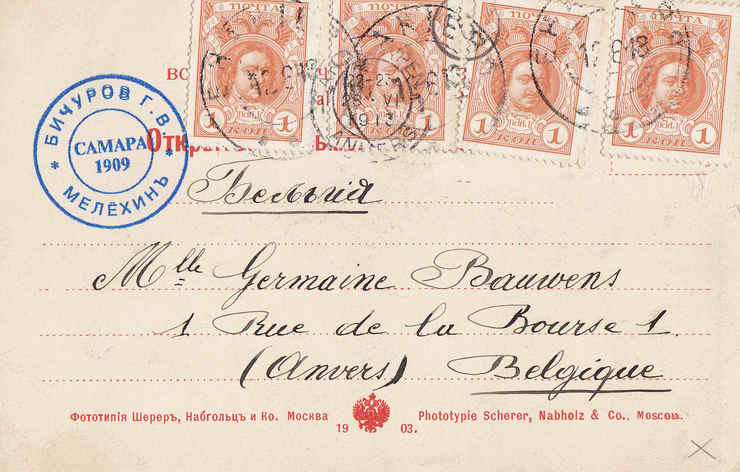 ПОЧТА ПОЧТА ПОЧТА
1 КОП 1 1 КОП 1 1 КОП 1 1 КОП 1
12 6 13
1913
БИЧУРОВ Г. В.
САМАРА
1909
* МЕЛЁХИНЪ *
Бельгія
Mlle Germaine Bauwens
1 Rue de la Bourse 1
(Anvers) Belgique
Фототипія Шереръ, Набгольцъ и Ко. Москва Phototypie Scherer, Nabholz & Co., Moscow.
19 03.